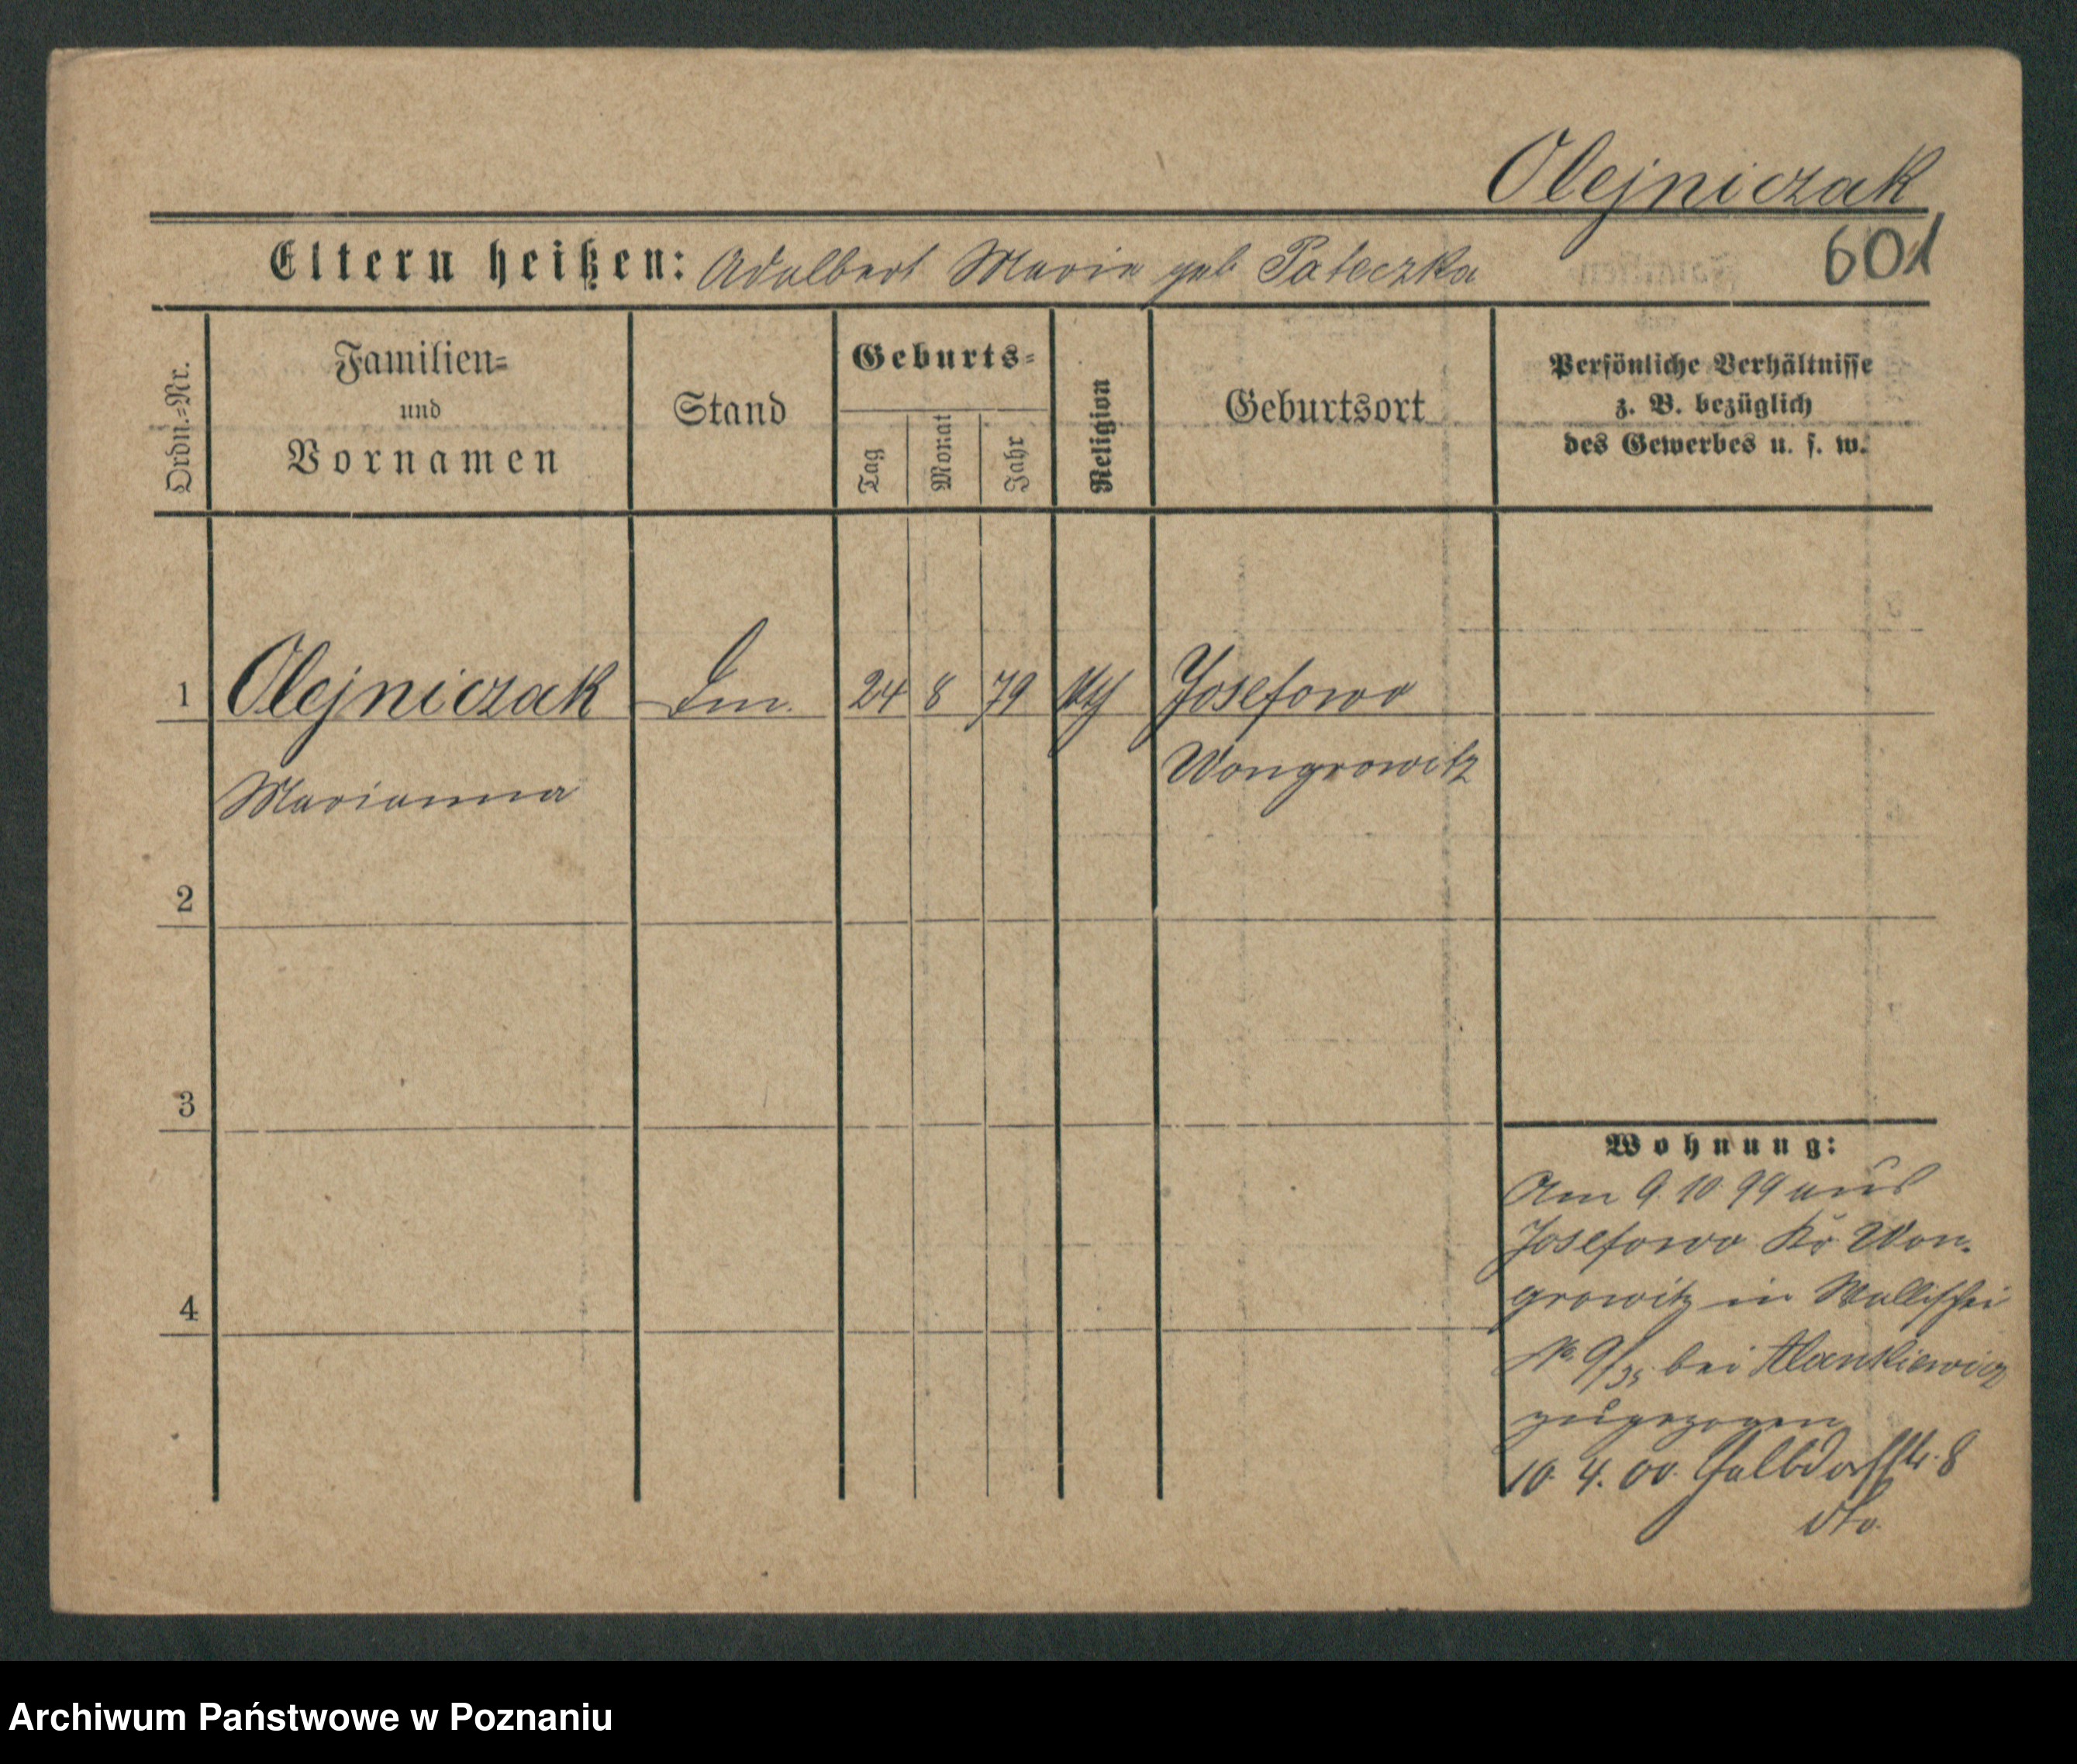 Olejniczak
601
Eltern heißen: Adalbert Marie geb Pateczka
Ordn.=Nr.
Familien=
und
Vornamen
Stand
Geburts=
Tag
Monat
Jahr
Religion
Geburtsort
Persönliche Verhältnisse
z. B. bezüglich
des Gewerbes u. s. w.
1 Olejniczak 24 8 79 kth Josefowo
Marianna Wongrowitz
2
3
4
Wohnung:
Am 9. 10 99 aus
Josefowo Kr Won-
growitz in Wallischei
No 9/35 bei
zugezogen
10. 4. 00. Halbdorfstr. 8
dto.
Archiwum Państwowe w Poznaniu